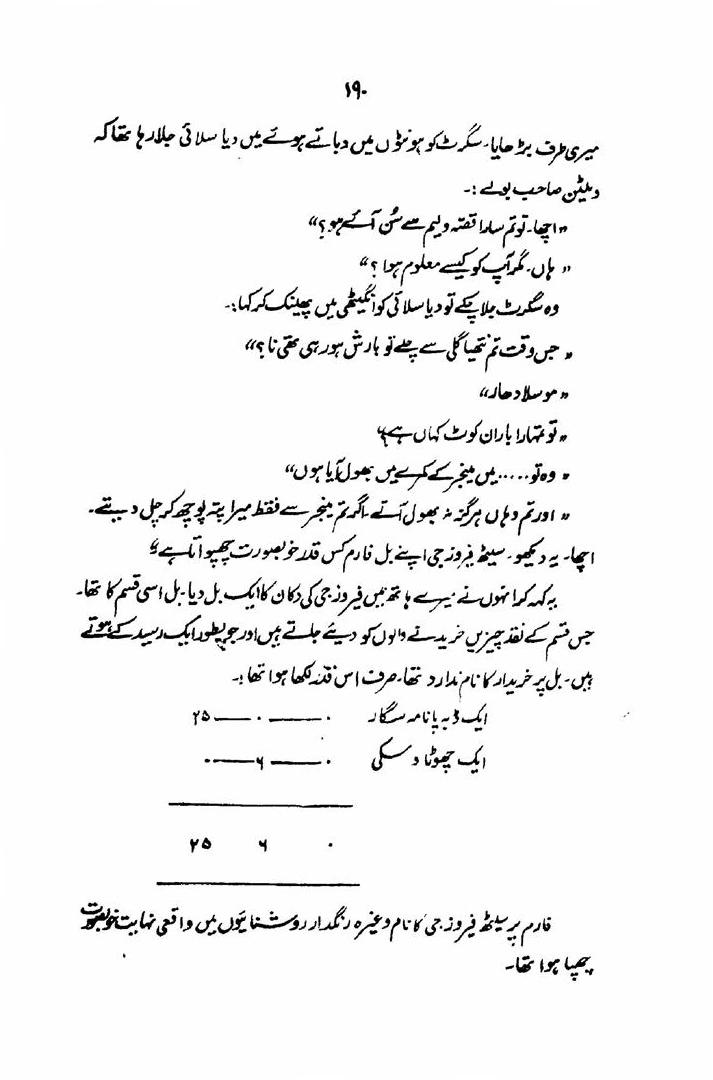 ۱۹۰
میری طرف بڑھایا۔ سگرٹ کو ہونٹوں میں دباتے ہوئے میں دیا سلائی جلا رہا تھا کہ
وملیٹن صاحب بولے :۔
”اچھا۔ تو تم سارا قصّہ ولیم سے سُن آئے ہو؟“
”ہاں۔ مگر آپ کو کیسے معلوم ہوا ؟“
وہ سگرٹ جلا چکے تو دیا سلائی کو انگیٹھی میں پھینک کر کہا:۔
”جس وقت تم نتھیا گلی سے چلے تو بارش ہو رہی تھی نا؟“
”موسلا دھار“
”تو تمہارا باران کوٹ کہاں ہے؟“
”وہ تو..... میں مینجر کے کمرے میں بھول آیا ہوں“
”اور تم وہاں ہرگز نہ بھول آتے۔ اگر تم مینجر سے فقط میرا پتہ پوچھ کر چل دیتے۔
اچھا۔ یہ دیکھو۔ سیٹھ فیروز جی اپنے بل فارم کس قدر خوبصورت چھپواتا ہے“
یہ کہہ کر انہوں نے میرے ہاتھ میں فیروز جی کی دکان کا ایک بل دیا۔ بل اسی قسم کا تھا۔
جس قسم کے نقد چیزیں خریدنے والوں کو دیئے جاتے ہیں اور جو بطور ایک رسید کے ہوتے
ہیں۔ بل پر خریدار کا نام ندارد تھا۔ صرف اس قدر لکھا ہوا تھا :۔
ایک ڈبہ پانامہ سگار ۰ — ۰ — ۲۵
ایک چھوٹا وسکی ۰ — ۶ — ۰
۰ ۶ ۲۵
فارم پر سیٹھ فیروز جی کا نام وغیرہ رنگدار روشنائیوں میں واقعی نہایت خوبصورت
چھپا ہوا تھا۔